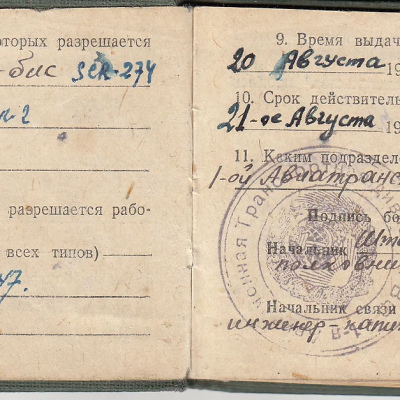 оторых разрешается
-бис SCR-274
л-2
разрешается рабо-
всех типов)
47.
9. Время выдач
20 Августа 19
10. Срок действитель
21-ое Августа 19
11. Каким подраздел
1-ой Авиатранс
Подпись бо
Начальник Шта
полковни
Начальник связи
инженер-капи